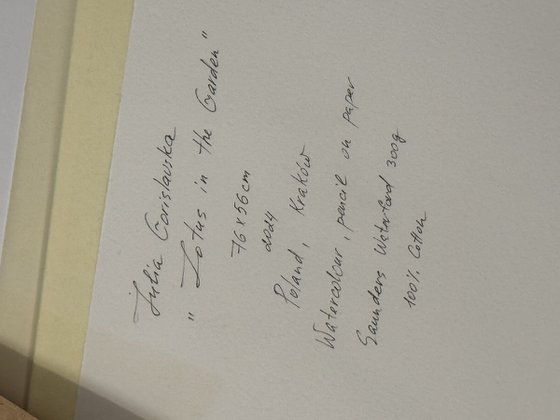 Julia Gorislavska
"Lotus in the Garden"
76x56cm
2024
Poland, Kraków
Watercolour, pencil on paper
Saunders Waterford 300g
100% Cotton